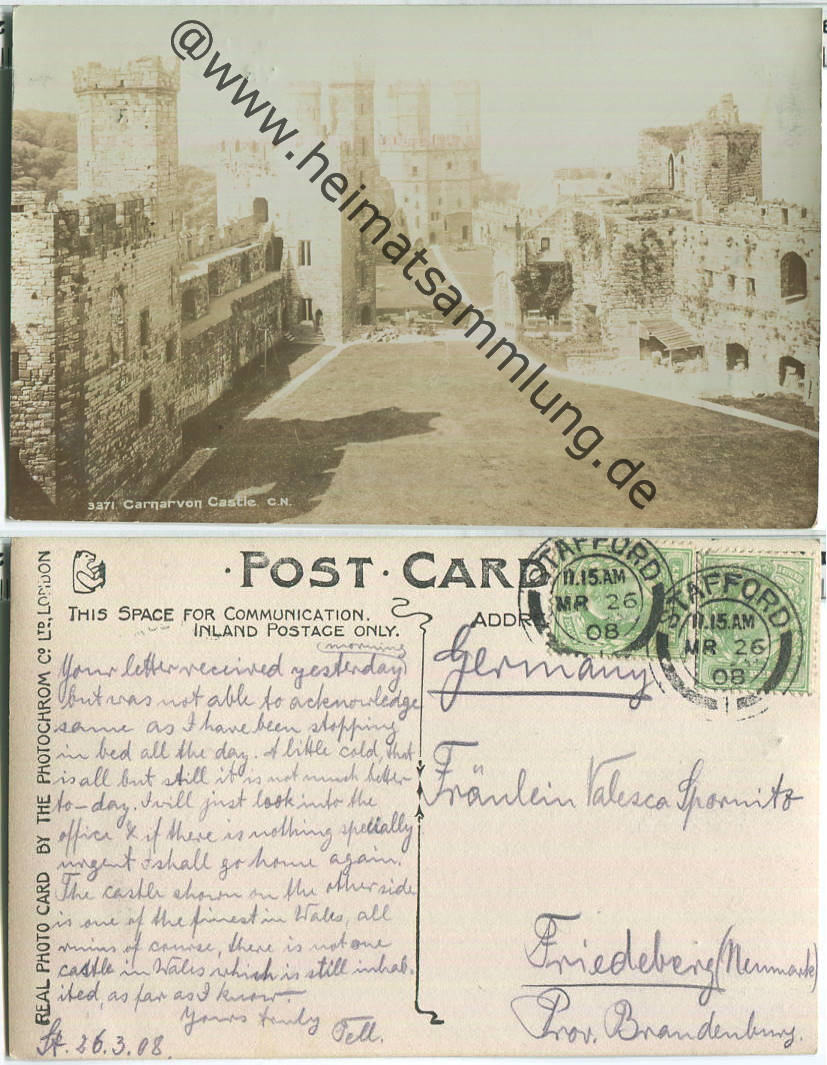 @www.heimatsammlung.de
3371 Carnarvon Castle C.N.
REAL PHOTO CARD BY THE PHOTOCHROM CO LTD, LONDON
POST CARD
THIS SPACE FOR COMMUNICATION.
INLAND POSTAGE ONLY.
ADDRE
STAFFORD
11.15.AM
MR 26
08
STAFFORD
11.15.AM
MR 26
08
(morning)
Your letter received yesterday
but was not able to acknowledge
same as I have been stopping
in bed all the day. A little cold, that
is all but still it is not much better
to-day. I will just look into the
office & if there is nothing specially
urgent I shall go home again.
The castle shown on the other side
is one of the finest in Wales, all
ruins of course, there is not one
castle in Wales which is still inhab-
ited, as far as I know.-
Yours truly
Fell.
St. 26.3.08.
Germany
Fräulein Valesca Spornitz
Friedeberg (Neumark)
Prov. Brandenburg.